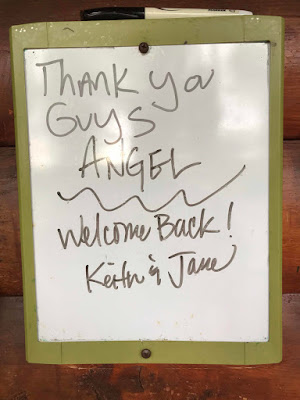 Thank you
Guys
ANGEL
Welcome Back!
Keith & Jane